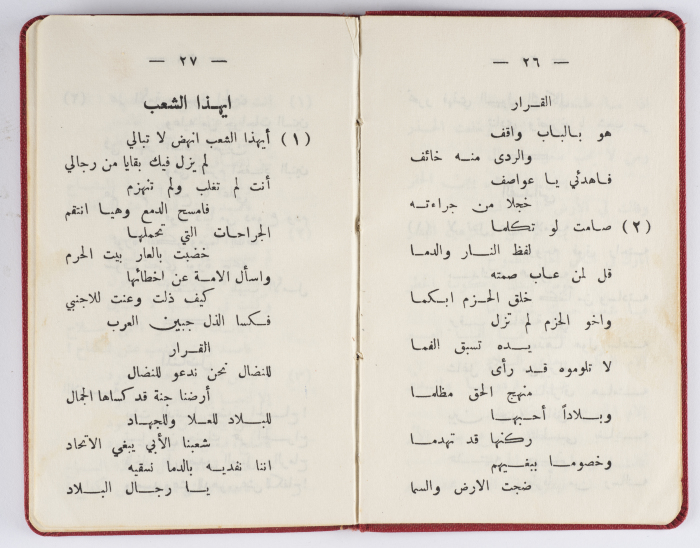 — ٢٦ —
القرار
هو بالباب واقف
والردى منه خائف
فاهدئي يا عواصف
خجلا من جراءته
(٢) صامت لو تكلما
لفظ النار والدما
قل لمن عاب صمته
خلق الحزم ابكما
واخو الحزم لم تزل
يده تسبق الفما
لا تلوموه قد رأى
منهج الحق مظلما
وبلاداً أحبها
ركنها قد تهدما
وخصوما ببغيهم
ضجت الارض والسما
— ٢٧ —
ايهذا الشعب
(١) أيهذا الشعب انهض لا تبالي
لم يزل فيك بقايا من رجالي
أنت لم تغلب ولم تنهزم
فامسح الدمع وهيا انتقم
الجراحات التي تحملها
خضبت بالعار بيت الحرم
واسأل الامة عن اخطائها
كيف ذلت وعنت للاجنبي
فكسا الذل جبين العرب
القرار
للنضال نحن ندعو للنضال
أرضنا جنة قد كساها الجمال
للبلاد للعلا وللجهاد
شعبنا الأبي يبغي الاتحاد
اننا نفديه بالدما نسقيه
يا رجال البلاد